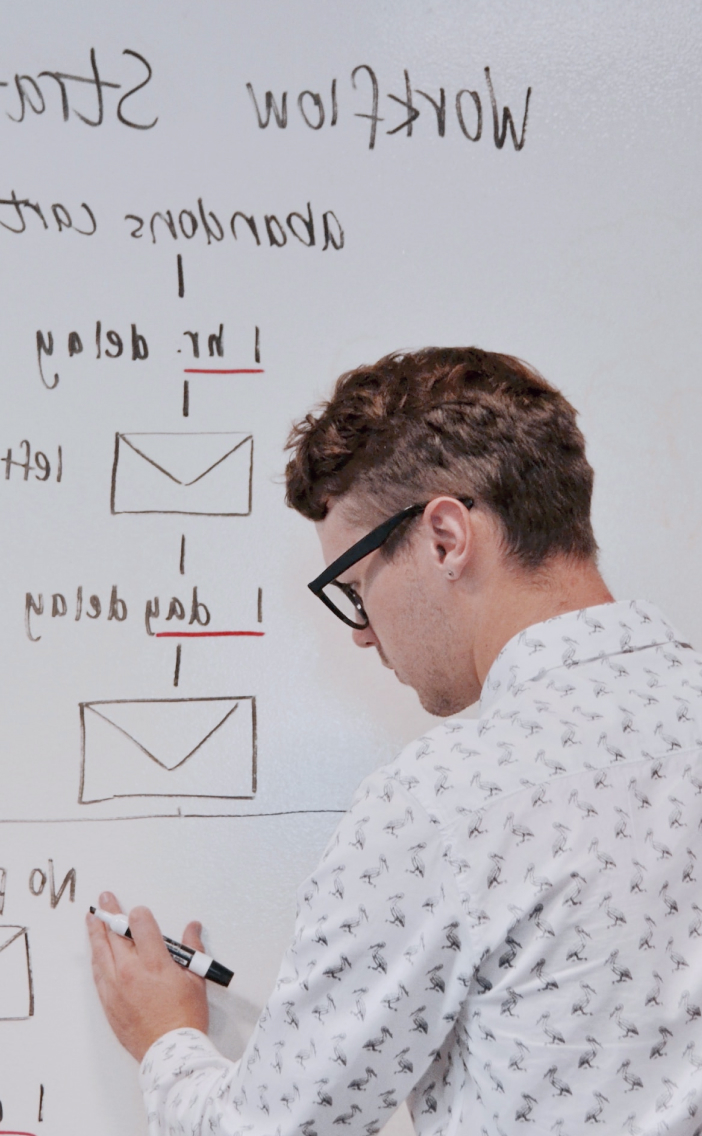 Workflow Stra
abandons cart
1 hr. delay
left
1 day delay
No
1